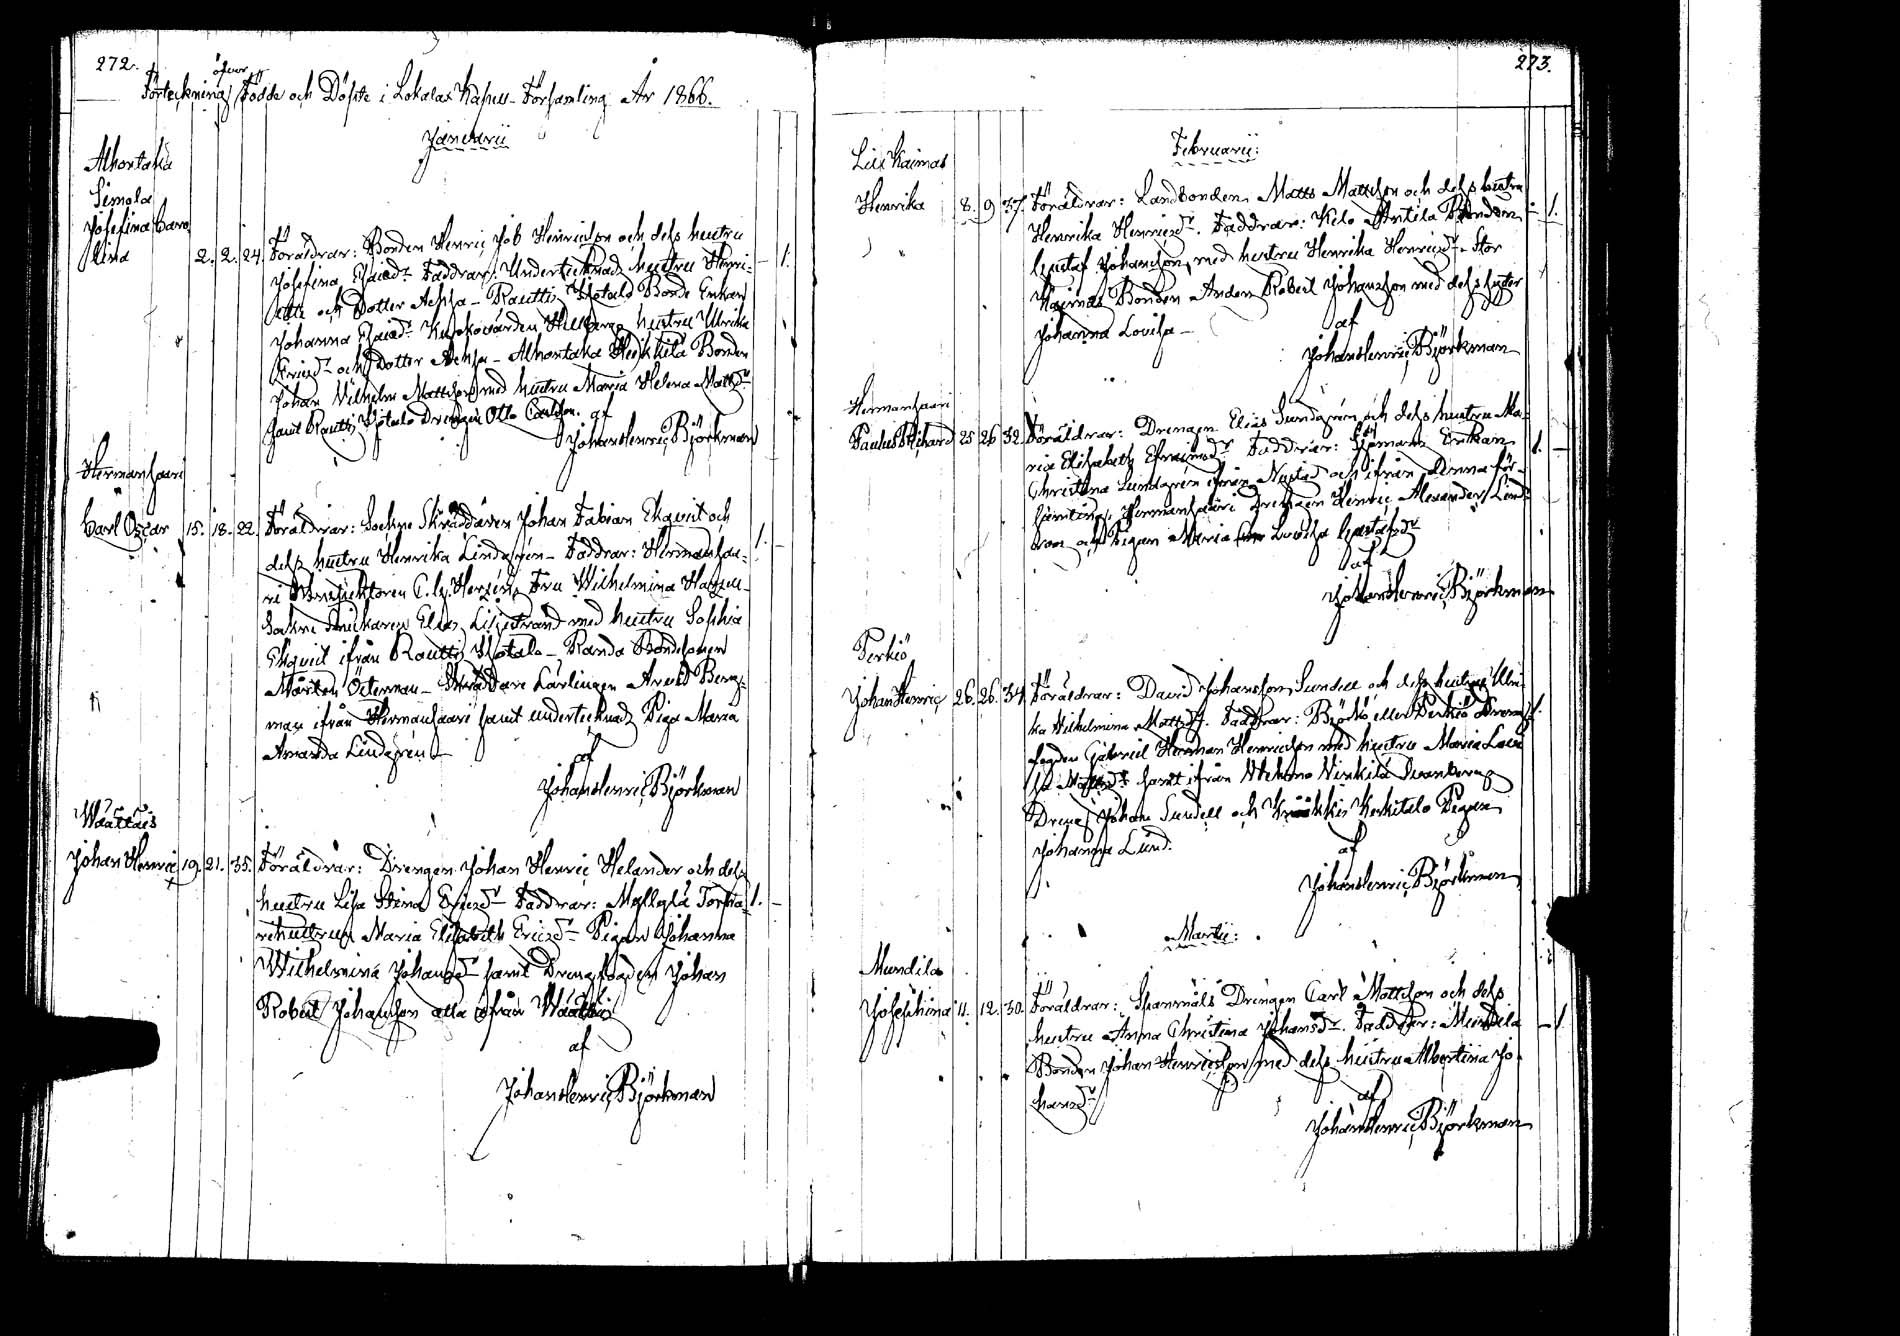 272.
Förteckning öfver Födde och Döpte i Lokalax Kapell-Församling År 1866.
Januarii
Alhontaka
Simola
Josefina Caro
lina 2. 2. 24. Föräldrar: Bonden Henric Job Henricsson och dess hustru — 1.
Josefina Esaiæd:r Faddrar: Undertecknads hustru Henri-
ette och Dotter – Rautti Ylötalo Bonde Enkan
Johanna Esaiæd:r hustru Ulrika
Ericsd:r och Dotter – Alhontaka Heikkilä Bonden
Johan Vilhelm Mattsson med hustru Maria Helena Mattsd:r
samt Rautti Ylötalo Drengen Otto Carlsson. af
Johan Henric Björkman
Hermansaari
Carl Oscar 15. 18. 22. Föräldrar: Sockne Skräddaren Johan Fabian Ekqvist och 1. –
dess hustru Henrika Lindgrén – Faddrar: Hermansaa-
ri Inspektoren C. G. Fru Wilhelmina
Sockne Snickaren Elias Liljestrand med hustru Sophia
Ekqvist ifrån Rautti Ylötalo – Randa Bondesonen
Mårten Österman – Skräddare Lärlingen Arvid Berg-
man ifrån Hermansaari samt undertecknads Piga Maria
Amanda Lindgrén –
af
Johan Henric Björkman
Waattais
Johan Henric 19. 21. 35. Föräldrar: Drengen Johan Henric Helander och dess
hustru Lisa Stina Ericsd:r Faddrar: Torpa- 1. –
rehustrun Maria Elisabeth Ericsd:r Pigan Johanna
Wilhelmina Johansd:r samt Drengfogden Johan
Robert Johansson alla ifrån Waattais
af
Johan Henric Björkman
273.
Februarii:
Lill Kaimas
Henrika 8. 9 37. Föräldrar: Landbonden Matts Mattsson och dess hustru – 1.
Henrika Henricsd:r. Faddrar: Kelo Antila Bonden
Gustaf Johansson med hustru Henrika Henricsd:r – Stor
Kaimas Bonden Anders Robert Johansson med dess syster
Johanna Lovisa –
af
Johan Henric Björkman
Hermansaari
Paulus Richard 25 26 32. Föräldrar: Drengen Elias Lundgrén och dess hustru Ma- 1. –
ria Elisabeth Efraimsd:r Faddrar: Sjömans Enkan
Christina Lundgrén ifrån Nystad och ifrån denna för-
samling, Hermansaari Drengen Henric Alexander Lind-
roos och Pigan Maria Lovisa Gustafsd:r
af
Johan Henric Björkman
Perkiö
Johan Henric 26. 26. 34. Föräldrar: David Johansson Sundell och dess hustru Ulri-
ka Wilhelmina Mattsd:r. Faddrar: Björkö eller Perkiö Dreng- 1.
fogden Gabriel Herman Henricsson med hustru Maria Lovi
sa Mattsd:r samt ifrån
Dreng Johan Sundell och Pigan
Johanna Lund.
af
Johan Henric Björkman
Martii:
Mundila
Josephina 11. 12. 30. Föräldrar: Spanmåls Drengen Carl Mattsson och dess
hustru Anna Christina Johansd:r. Faddrar: Mundila – 1.
Bonden Johan Henricsson med dess hustru Albertina Jo-
hansd:r
af
Johan Henric Björkman